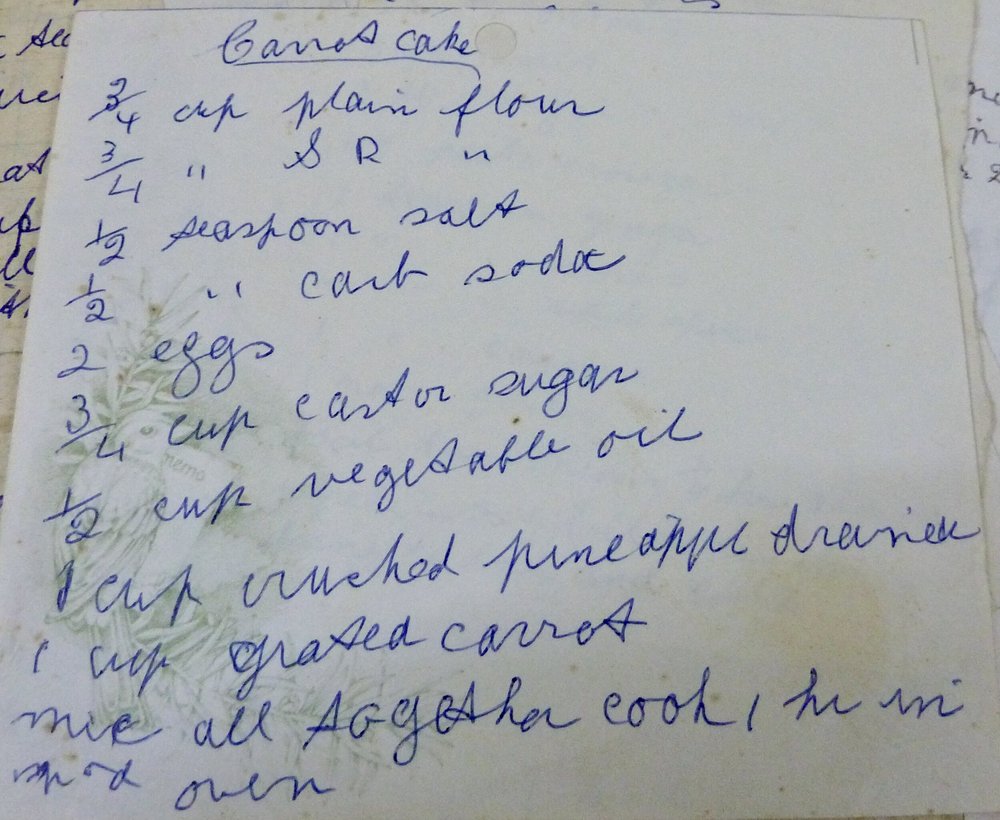 Carrot cake
3/4 cup plain flour
3/4 " S R "
1/2 teaspoon salt
1/2 " carb soda
2 eggs
3/4 cup castor sugar
1/2 cup vegetable oil
1 cup crushed pineapple drained
1 cup grated carrot
mix all together cook 1 hr in
mod oven
memo